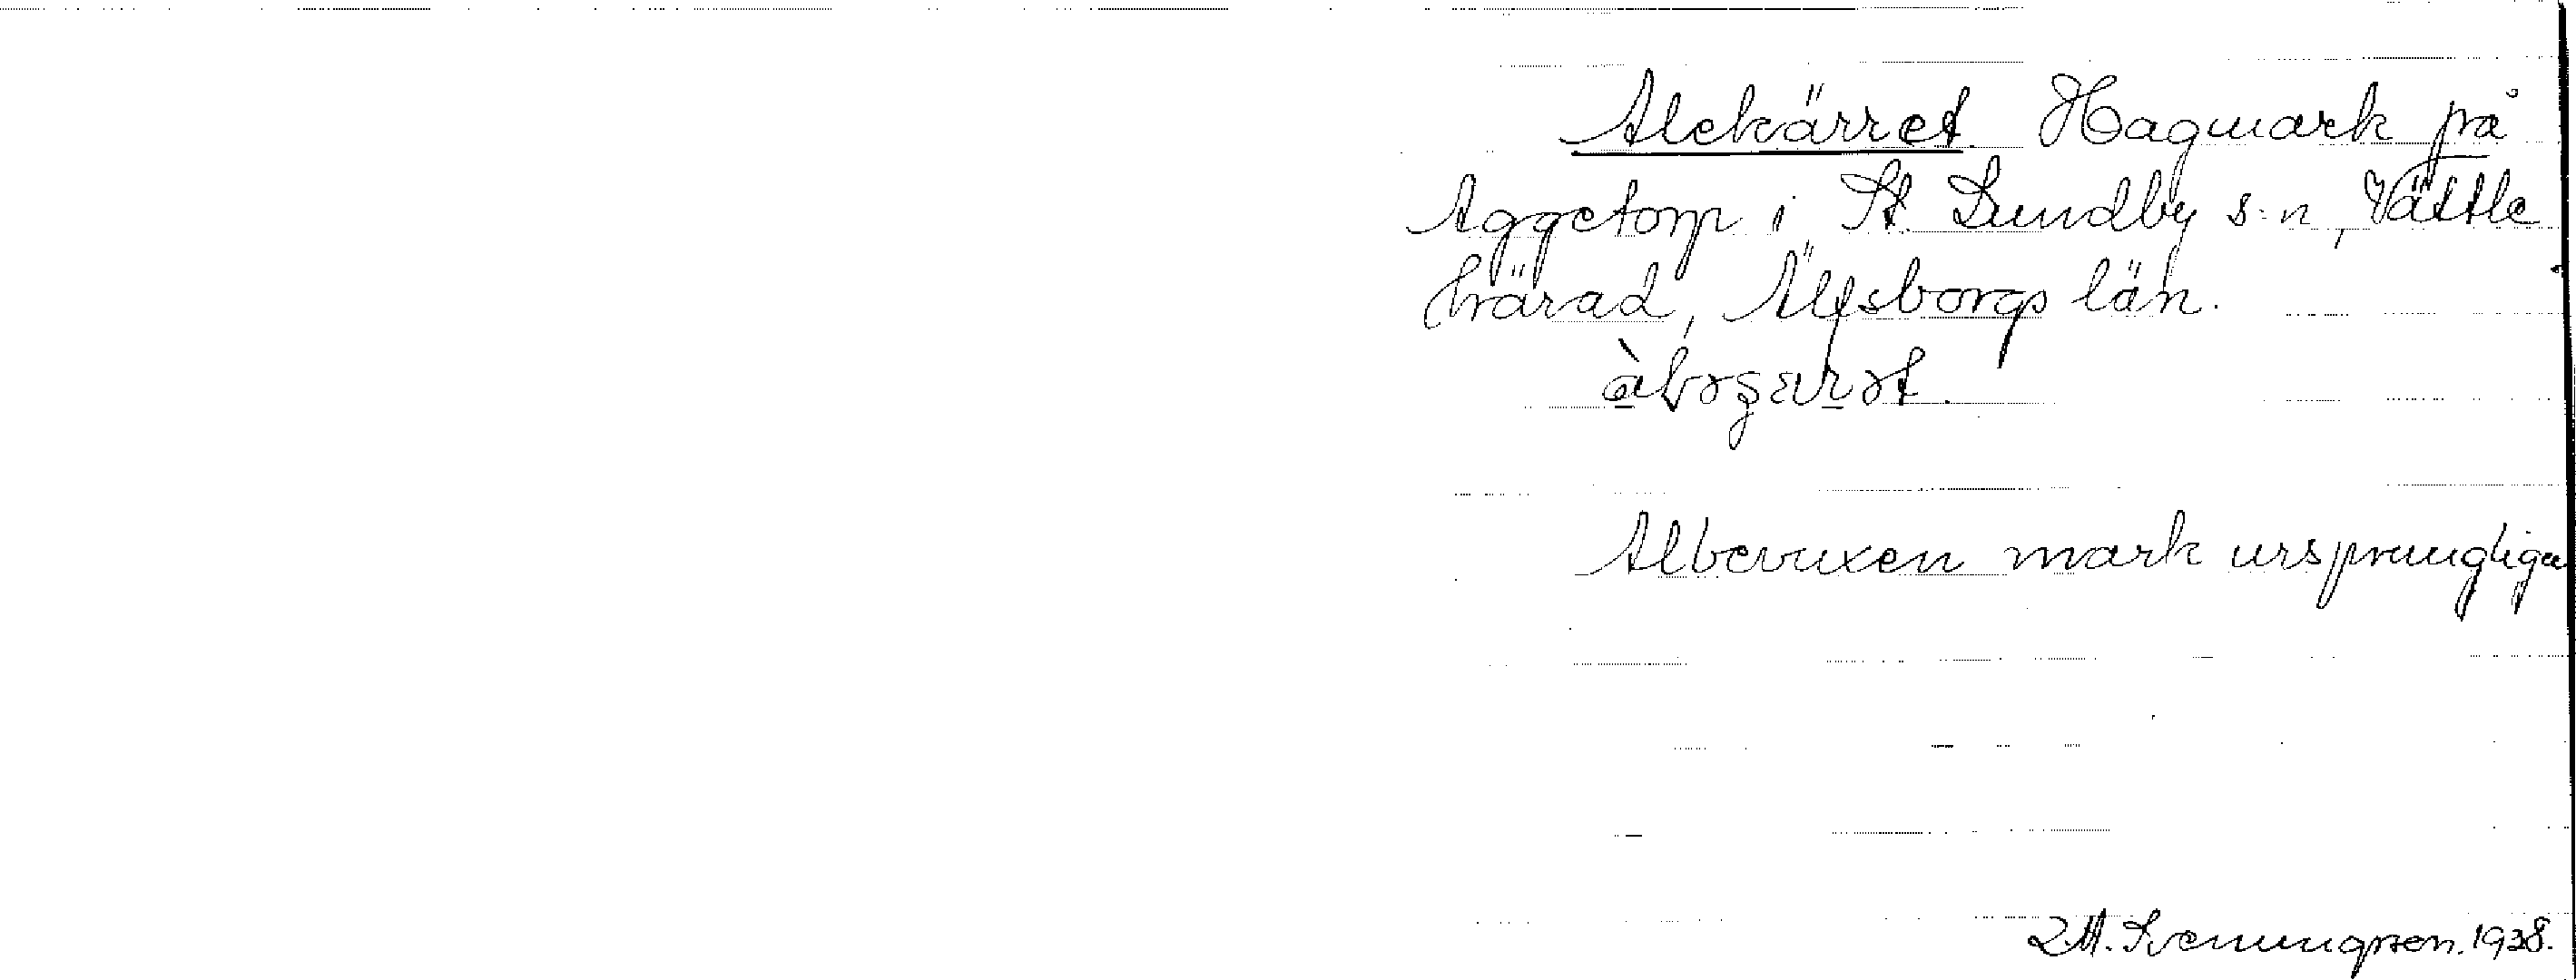 Alekärret. Hagmark på
Aggetorp i St. Lundby s:n, Vättle
härad, Älfsborgs län.
Albevuxen mark ursprungliga
1938.